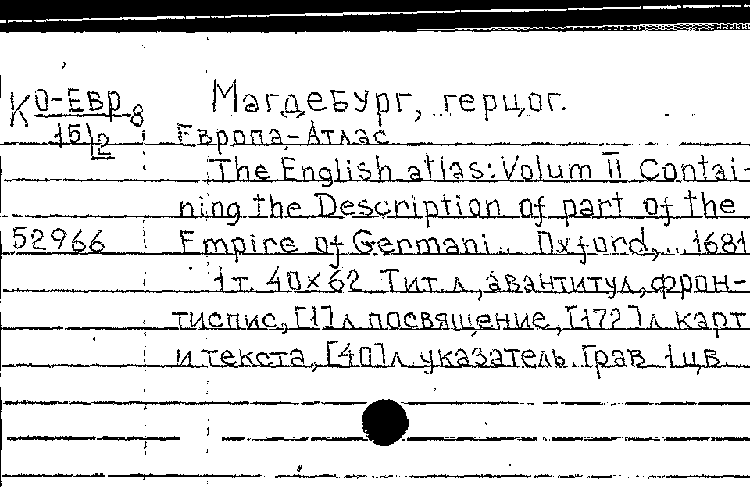 К О-Евр 8 Магдебург, герцог.
15/2 Европа-Атлас
The English atlas: Volum II Contai-
ning the Description of part of the
52966 Empire of Germani... Oxford,... 1681
1т. 40×62 Тит. л, авантитул, фрон-
тиспис, [1] л посвящение, [172] л карт
и текста, [40] л указатель. Грав 1цв